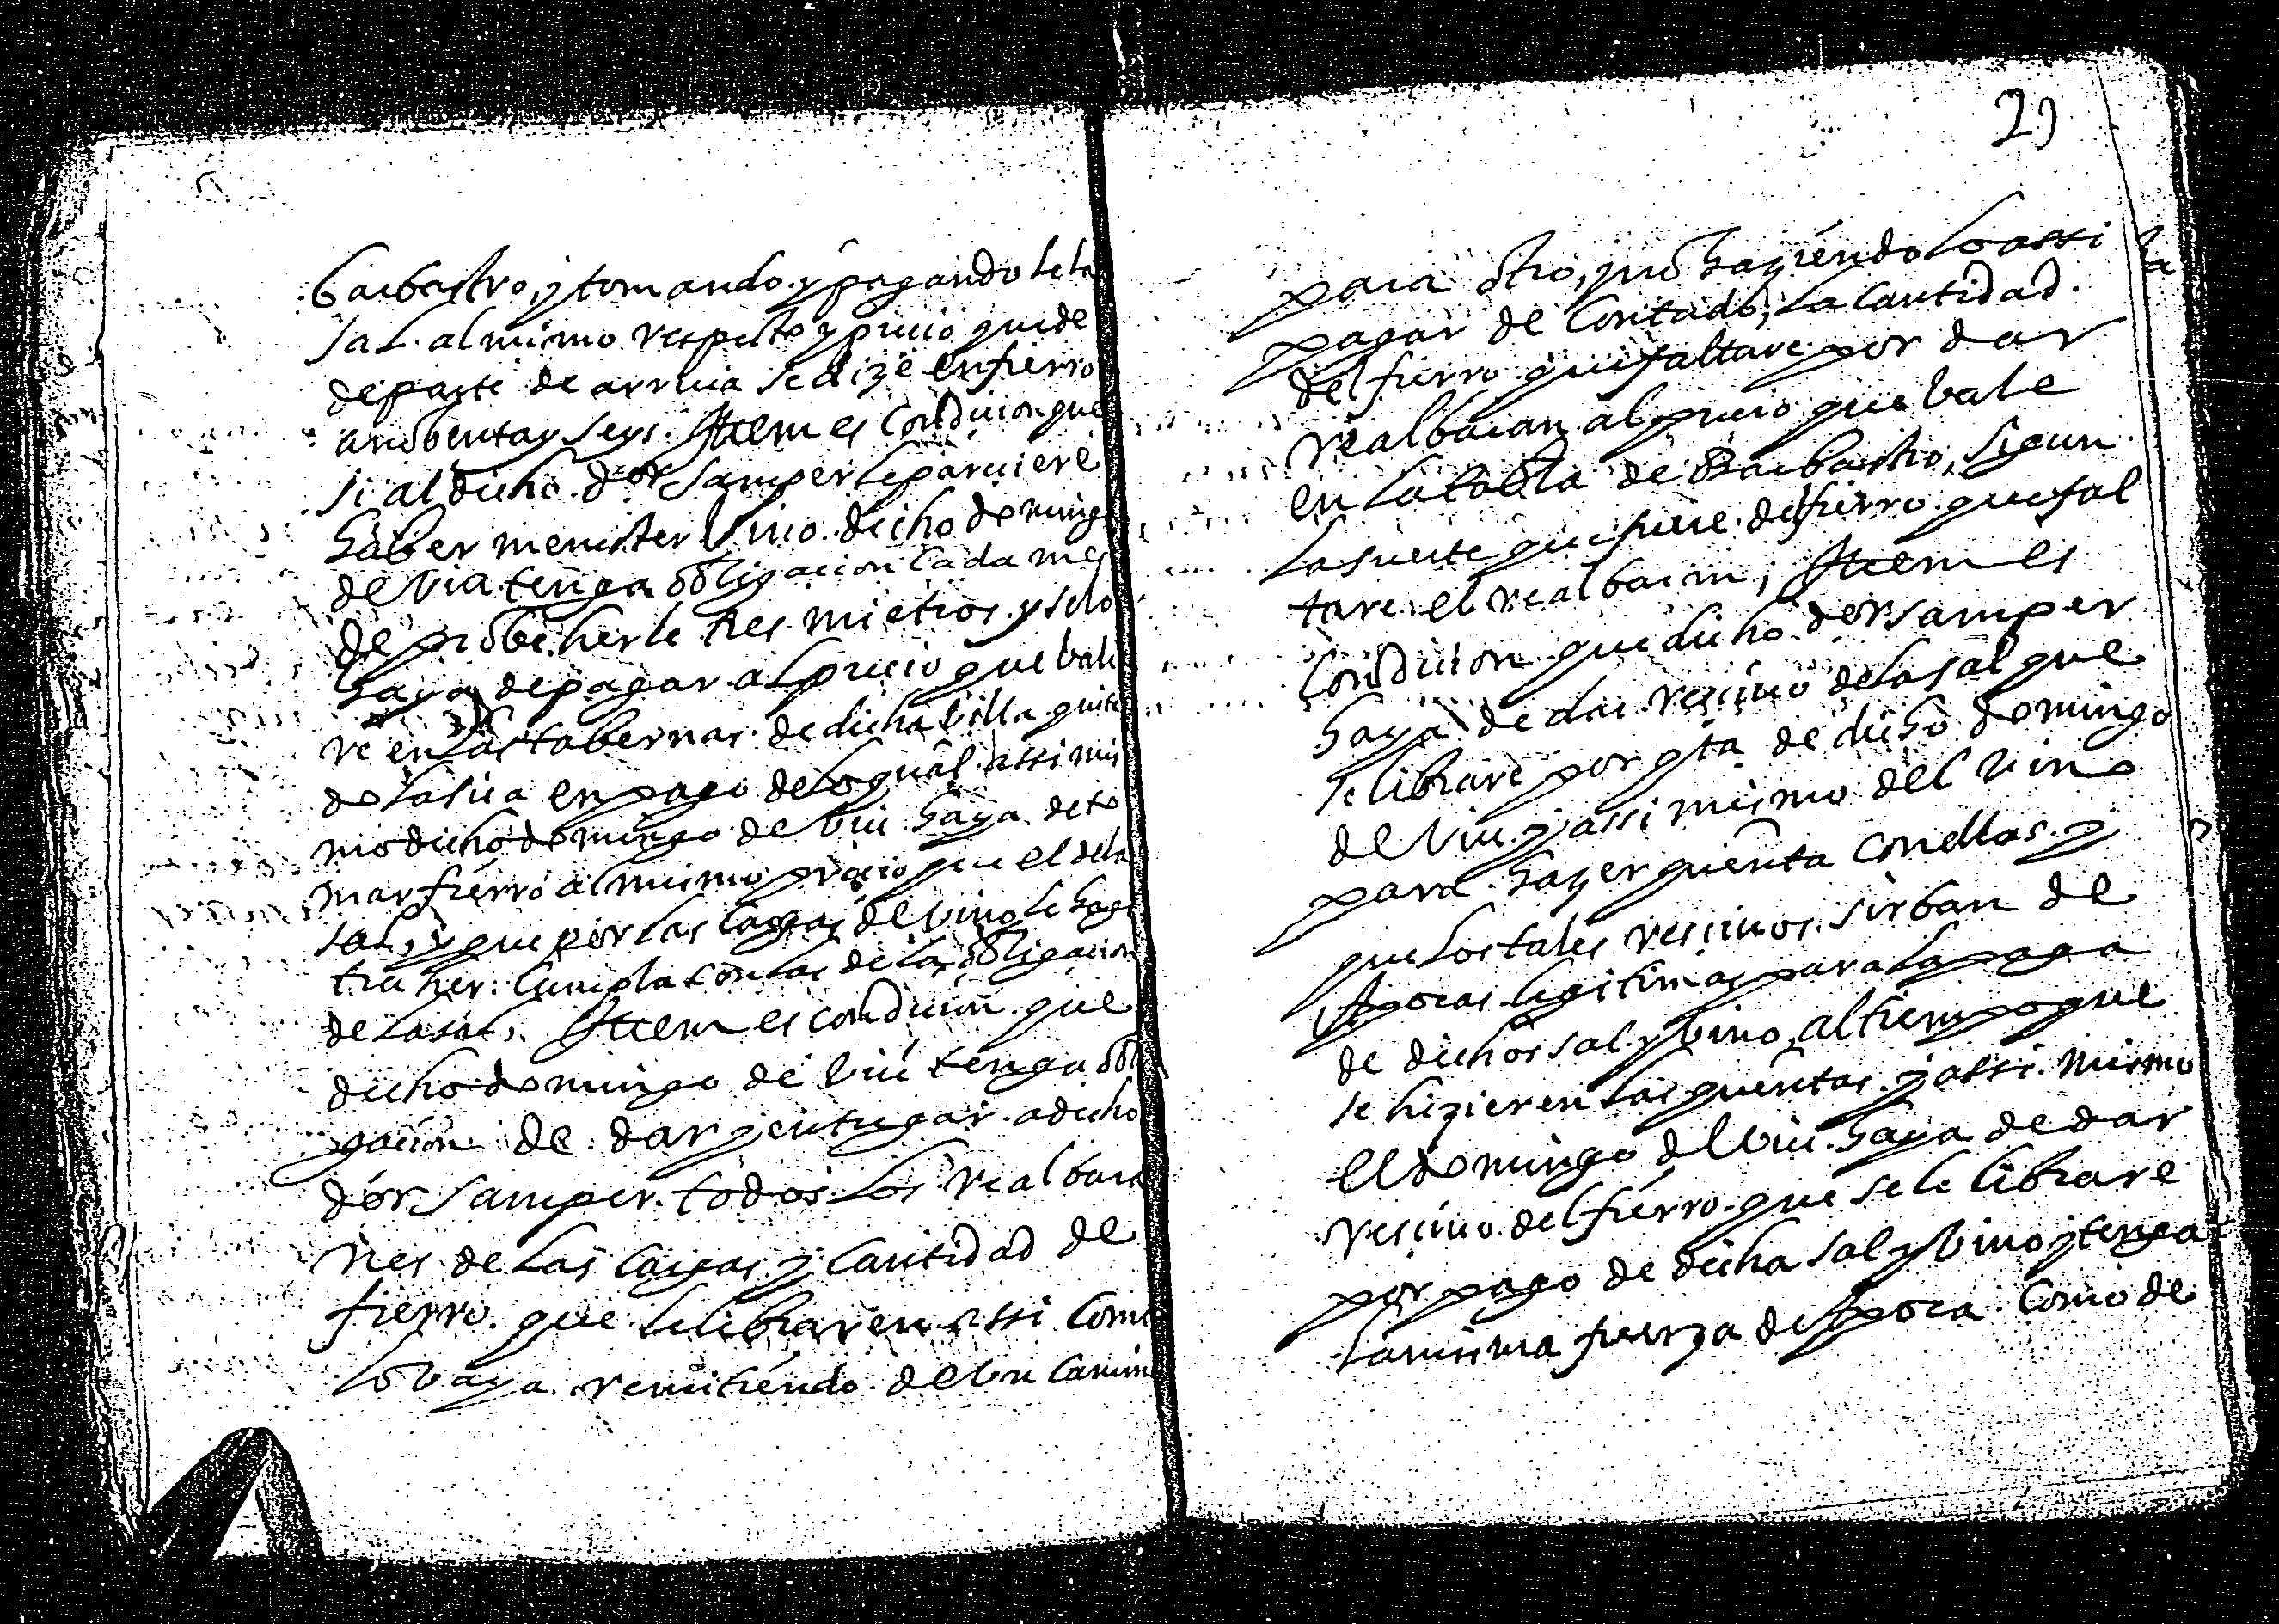 barbastro, y tomando y pagando le la
sal al mismo respecto y precio que de
de parte de arriua se dize en fierro
a nobenta y seys. Ittem es condicion que
si al dicho dor Samper le pareciere
haber menester Vino dicho domingo
de Viu tenga obligacion cada mes
de probeherle tres mietros y selo
haya de pagar al precio que balie
re en las tabernas de dicha billa quita
do la sisa en pago de lo qual assi mis
mo dicho domingo de Viu haya de to
mar fierro al mismo precio que el dela
sal, y que por las cargas de Vino le haga
traher cumpla con las de la obligacion
de la sal. Ittem es condicion que
dicho domingo de Viu tenga obli
gacion de dar y entregar a dicho
dor Samper todos los realbara
nes de las cargas y cantidad de
fierro que le libraren assi como
lo vaya remitiendo de Un camino
29
para otro, y no haziendolo assi
pagar de contado, la cantidad
del fierro que faltare por dar
realbaran al precio que bale
en la tabla de Barbastro, sigun
la suerte que fuere de fierro que fal
tare el realbaran, Ittem es
condicion que dicho dor Samper
haya de dar recivo dela sal que
se librare por qta de dicho domingo
de Viu y assi mismo del vino
para hazer quenta con ellas y
que los tales recivos sirban de
Apocas ligitimas para la paga
de dichos sal y bino, al tiempo que
se hizieren las quentas y assi mismo
el domingo de Viu haya de dar
recivo del fierro que se le librare
por pago de dicha sal y Vino y tenga
la misma fuerza de Apoca como de